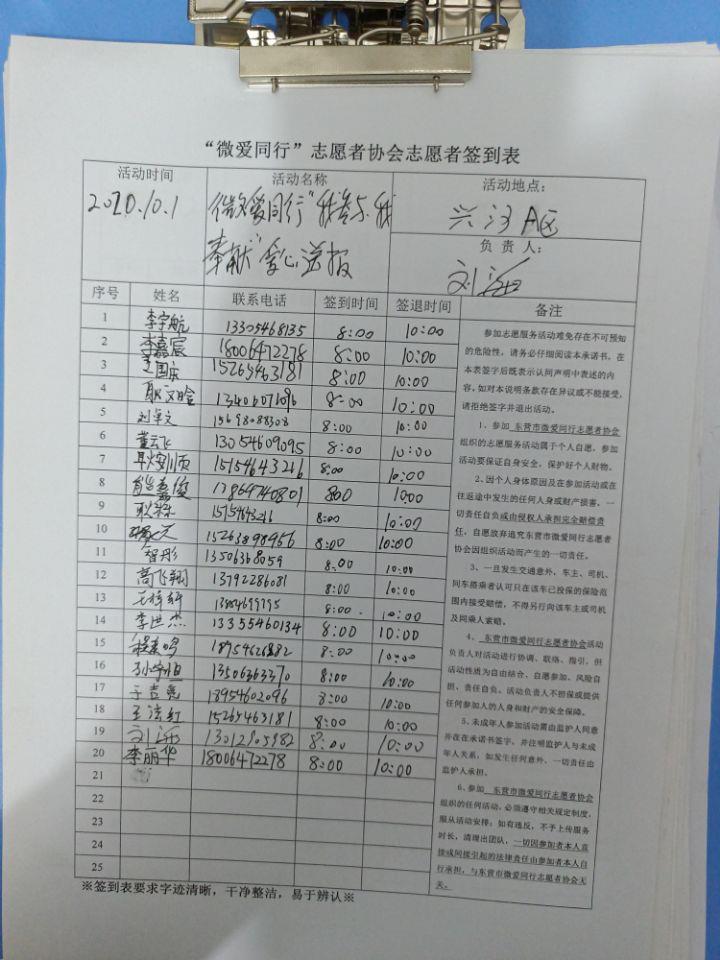 “微爱同行”志愿者协会志愿者签到表
活动时间 活动名称 活动地点：
2020.10.1 微爱同行"我参与.我 兴河A区
奉献"爱心送报 负责人：
刘
序号 姓名 联系电话 签到时间 签退时间 备注
1 李宇航 13305468135 8:00 10:00
2 李嘉宸 18006472278 8:00 10:00
3 王国庆 15265463181 8:00 10:00
4 耿文晗 13406071696 8:00 10:00
5 刘卓文 15698088308 8:00 10:00
6 董云飞 13054609095 8:00 10:00
7 15154643216 8:00 10:00
8 熊嘉俊 17864740801 800 1000
9 15154643216 8:00 10:00
10 15263898956 8:00 10:00
11 智彤 13506368059 8:00 10:00
12 高飞翔 13792286081 8:00 10:00
13 8:00 10:00
14 李洪杰 13355460134 8:00 10:00
15 18954626882 8:00 10:00
16 13506363370 8:00 10:00
17 于吉亮 18954602096 8:00 10:00
18 王法红 15265463181 8:00 10:00
19 刘 13012905982 8:00 10:00
20 李丽华 18006472278 8:00 10:00
21
22
23
24
25
参加志愿服务活动难免存在不可预知
的危险性，请务必仔细阅读本承诺书。在
本表签字后既表示认同声明中表述的内
容。如对本说明条款存在异议或不能接受，
请拒绝签字并退出活动。
1、参加 东营市微爱同行志愿者协会
组织的志愿服务活动属于个人自愿。参加
活动要保证自身安全，保护好个人财物。
2、因个人身体原因及在参加活动或在
往返途中发生的任何人身或财产损害，一
切责任自负或由侵权人承担完全赔偿责
任，自愿放弃追究东营市微爱同行志愿者
协会因组织活动而产生的一切责任。
3、一旦发生交通意外，车主、司机、
同车搭乘者认可只在该车已投保的保险范
围内接受赔偿，不得另行向该车主或司机
及同乘人索赔。
4、 东营市微爱同行志愿者协会活动
负责人对活动进行协调、联络、指引，但
活动性质为自由结合、自愿参加、风险自
担、责任自负。活动负责人不担保或提供
任何参加人的人身和财产的安全保障。
5、未成年人参加活动需由监护人同意
并在在承诺书签字，并注明监护人与未成
年人关系，如发生任何意外，一切责任由
监护人承担。
6、参加 东营市微爱同行志愿者协会
组织的任何活动，必须遵守相关规定制度，
服从活动安排；如有违反，不予上传服务
时长，清理出团队，一切因参加者本人直
接或间接引起的法律责任由参加者本人自
行承担，与东营市微爱同行志愿者协会无
关。
※签到表要求字迹清晰，干净整洁，易于辨认※